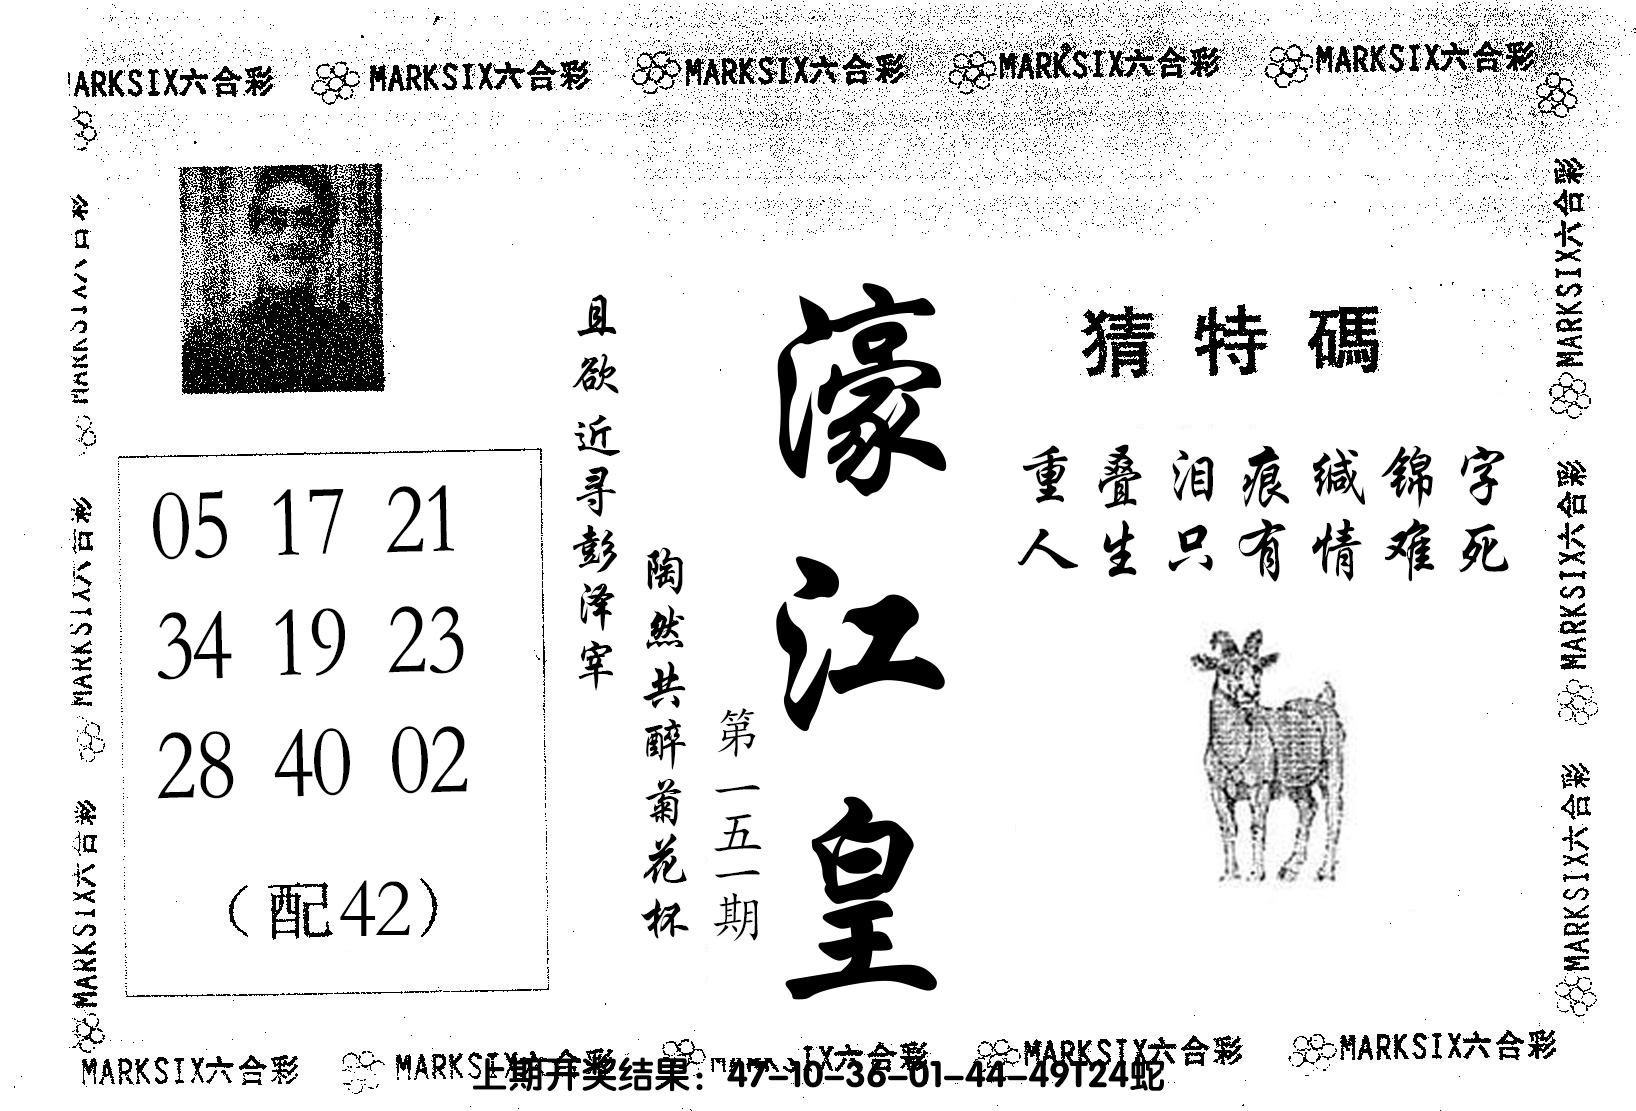 MARKSIX六合彩 MARKSIX六合彩 MARKSIX六合彩 MARKSIX六合彩
MARKSIX六合彩
MARKSIX六合彩
MARKSIX六合彩
MARKSIX六合彩
MARKSIX六合彩
MARKSIX六合彩
猜特碼
重叠泪痕缄锦字
人生只有情难死
濠江皇
第一五一期
且欲近寻彭泽宰
陶然共醉菊花杯
05 17 21
34 19 23
28 40 02
（配42）
MARKSIX六合彩 MARKSIX六合彩 MARKSIX六合彩 MARKSIX六合彩
上期开奖结果：47-10-36-01-44-49T24蛇